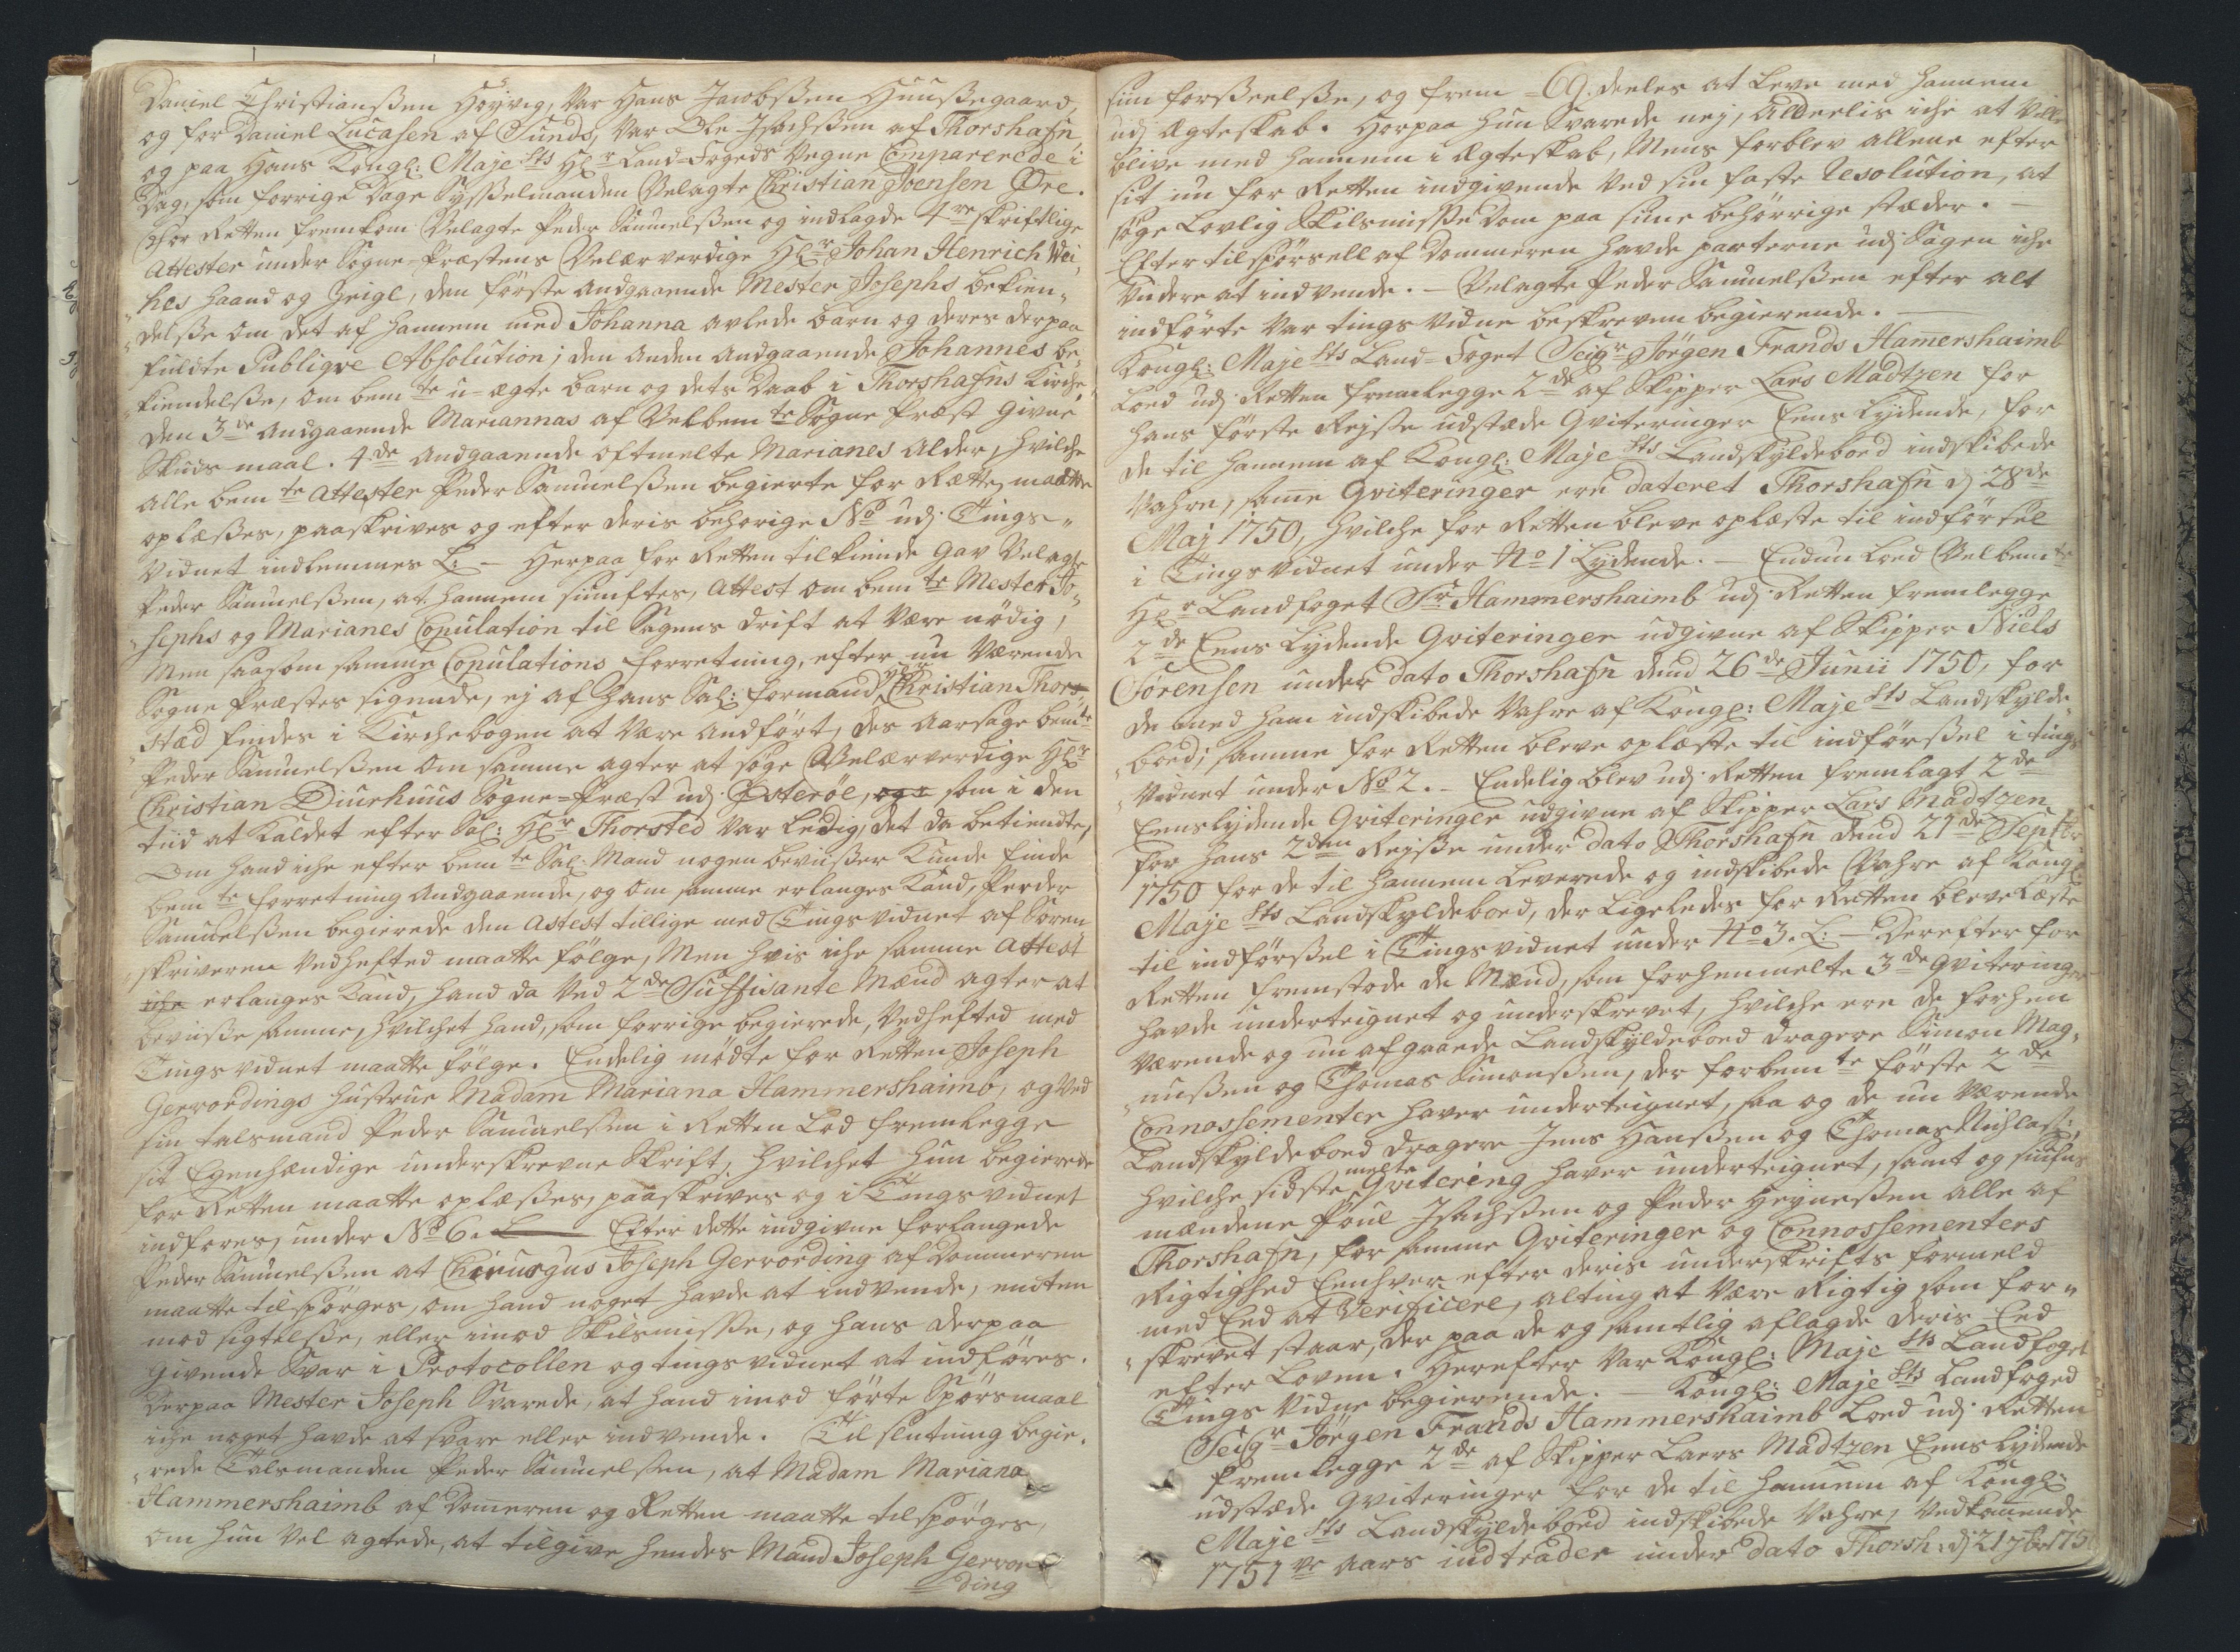 Daniel Christianßen Höyvig, Var Hans Jacobßen Huusegaard,
og for Daniel Lucasen af Sund, Var Ole Isachsen af Thorshafn
og paa Hans Kongl: Maje sts Hl r Land-Fogeds Vegne Comparerede i
Dag, som forrige Dage Sysselmanden Velagte Christian Joensen Øre.
For Retten fremkom Velagte Peder Samuelßen og indlagde 4 re skriftlige
Attester under Sogne-Præstens Velærverdige Hl r Johan Henrich Wei„
„hes Haand og Zeigl, den förste andgaaende Mester Josephs bekien„
„delße om det af hannem med Johanna avlede barn og deres derpaa
fuldte Publiqve Absolution; den anden andgaaende Johannes be„
„kiendelße, om bem te u-ægte barn og dets Daab i Thorshafns Kirche,
den 3 de andgaaende Mariannas af Velbem te Sogne Præst givne
Skuds maal. 4 de andgaaende oftmelte Marianes Alder, hvilche
alle bem te Attester Peder Samuelßen begierte for Rette, maatte
oplæßes, paaskrives og efter deris behörige No udj Tings„
Vidnet indlemmes L: — Herpaa for Retten tilkiende gav Velagte
Peder Samuelßen, at hannem siuntes, Attest om bem te Mester Jo„
„sephs og Marianes Copulation til Sagens drift at være nödig,
Men saasom samme Copulations forretning, efter nu Værende
Sogne Præstes sigende, ej af hans Sal: formand Hr Christian Thor„
„stæd findes i Kirchebogen at være andfört, des aarsage bem te
Peder Samuelßen om samme agter at söge Velærverdige Hl r
Christian Diurhuus Sogne-Præst udj Österöe, som i den
tiid at Kaldet efter Sal: Hl r Thorsted var ledig, det da betiendte,
Om hand iche efter bem te Sal: Mand nogen beviißer kunde finde
bem te forretning andgaaende, og om samme erlanges kand, Peder
Samuelßen begierede den Attest tillige med Tings vidnet af Soren„
„skriveren Vedhefted maatte fölge, Men hvis iche samme Attest
iche erlanges kand, hand da ved 2 de Suffisante Mænd agter at
beviiße samme, hvilchet hand, som forrige begierede, Vedhefted med
Tings vidnet maatte fölge. Endelig mödte for Retten Joseph
Gerrordings Hustrue Madam Mariana Hammershaimb, og ved
sin talsmand Peder Samuelsen i Retten lod fremlegge
sit Egenhændige underskrevne Skrift, hvilchet hun begierede
for Retten maatte oplæßes, paaskrives og i Tings vidnet
indföres, under No 6. Efter dette indgivne forlangede
Peder Samuelßen at Chirurgus Joseph Gerrording af Dommeren
maatte tilspörges, om hand noget havde at indvende, endten
mod sigtelße, eller imod Skilsmisse, og hans derpaa
givende Svar i Protocollen og tings vidnet at indföres.
Derpaa Mester Joseph Svarede, at hand imod förte Spörsmaal
iche noget havde at svare eller indvende. Til slutning begie„
„rede Talsmanden Peder Samuelsen, at Madam Mariana
Hammershaimb af Dommeren og Retten maatte tilspörges,
om hun vel agtede, at tilgive hendes Mand Joseph Gerror„
ding
69.
sin forßeelße, og frem-deeles at leve med hannem
udj Ægteskab. Herpaa hun Svarede nej, Alldeelis iche at Ville
blive med hannem i Ægteskab, Mens forblev allene efter
sit nu for Retten indgivende ved sin faste Resolution, at
söge Lovlig Skilsmisse dom paa sine behörrige stæder. —
Efter tilspörsell af Dommeren havde parterne udj Sagen iche
Videre at indvende. — Velagte Peder Samuelßen efter alt
indförte Var tings Vidne beskreven begierende. —
Kongl: Maje sts Land-Foget Seig r Jörgen Frands Hamershaimb
loed udj Retten fremlegge 2 de af Skipper Lars Madtzen for
hans förste Rejse udstæde Qviteringer Eens lydende, for
de til hannem af Kongl: Maje sts Landskyldeboed indskibede
Vahre, samme Qviteringer ere dateret Thorshafn d 28 de
Maj 1750, hvilche for Retten bleve oplæste til indförsel
i Tings Vidnet under No 1 Lydende. — Endnu loed Velbem te
Hl r Landfoget Sr Hammershaimb udj Retten fremlegge
2 de Eens Lydende Qviteringer udgivne af Skipper Niels
Sörensen under dato Thorshafn dend 26 de Junii 1750, for
de med ham indskibede Vahre af Kongl: Maje sts Landskylde„
„boed; samme for Retten bleve oplæste til indförßel i tings
Vidnet under No 2. — Endelig blev udj Retten fremlagt 2 de
Eenslydende Qviteringer udgivne af Skipper Lars Madtzen
for hans 2 den Rejse under dato Thorshafn dend 21 de Septbr
1750 for de til hannem leverede og indskibede Vahre af Kongl
Maje sts Landskyldeboed, der ligeledes for Retten bleve læste
til indförßel i Tings vidnet under No 3. L: — Derefter for
Retten fremstode de Mænd, som forhenmelte 3 de Qviteringer
havde underteignet og underskrevet, hvilche ere de forhen
værende og nu afgaaede Landskyldeboed dragere Simon Mag„
„nußen og Thomas Simonßen, der forbem te förste 2 de
Connossementer haver underteignet, saa og de nu værende
Landskyldeboed dragere Jens Hanßen og Thomas Nichlas:
hvilche sidste melte Qvitering haver underteignet, samt og siufns
mændene Poul Isachsen og Peder Heyneßen alle af
Thorshafn, for samme Qviteringer og Connossementers
Rigtighed Eenhver efter deris underskrifts formeld
med Eed at Verificere, alting at være Rigtig som for„
„skrevet staar, der paa de og samtlig aflagde deris Eed
efter Loven. Herefter var Kongl: Maje sts Landfoget
Tings Vidne begierende. — Kongl: Maje sts Landfoged
Seig r Jörgen Frands Hammershaimb loed udj Retten
fremlegge 2 de af Skipper Laers Madtzen Eenslydende
udstæde Qviteringer for de til hannem af Kongl:
Maje sts Landskyldeboed indskibede Vahre, vedkommende
1751 ve Aars indtrader under dato Thorsh: d 21 7br 1751